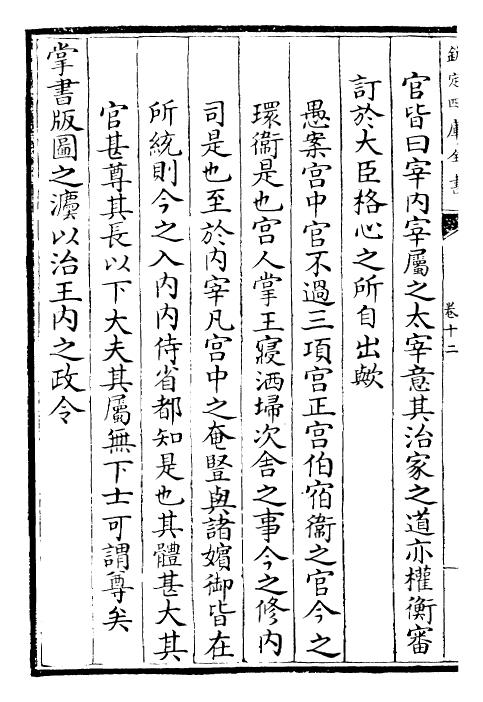 欽定四庫全書
卷十二
官皆曰宰内宰屬之太宰意其治家之道亦權衡審
訂於大臣格心之所自出歟
愚案宫中官不過三項宫正宫伯宿衞之官今之
環衞是也宫人掌王寢洒埽次舎之事今之修内
司是也至於内宰凡宫中之奄豎與諸嬪御皆在
所統則今之入内内侍省都知是也其體甚大其
官甚尊其長以下大夫其屬無下士可謂尊矣
掌書版圖之灋以治王内之政令